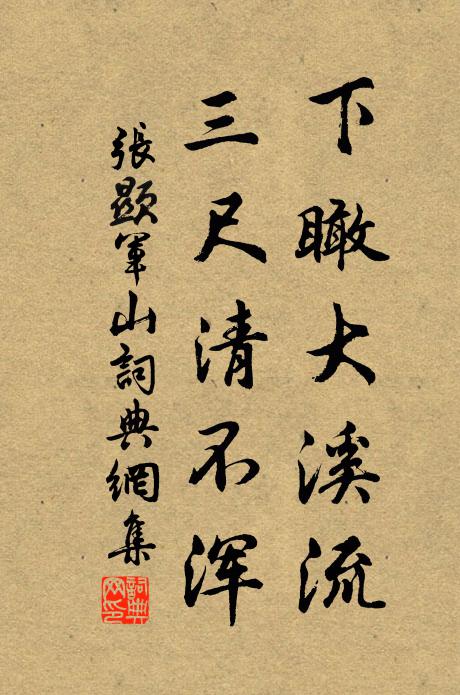 下瞰大溪流
三尺清不浑
張顯軍山詞典網集
詞典网印